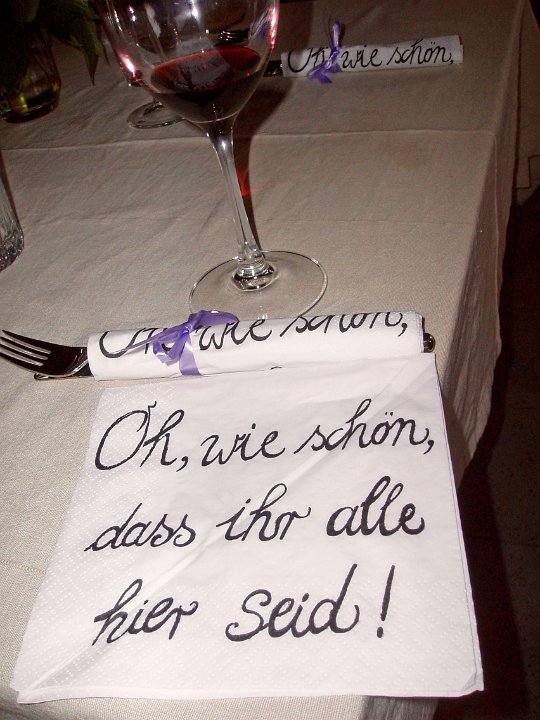 Oh, wie schön,
Oh, wie schön,
Oh, wie schön,
dass ihr alle
hier seid!